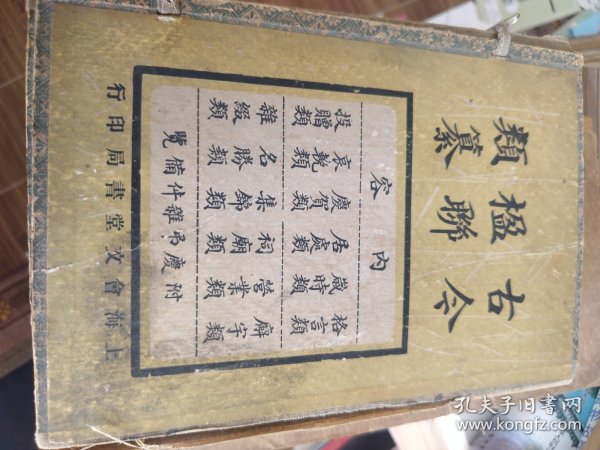 古今
楹聯
類纂
內容
格言類
歲時類
居處類
慶賀類
哀輓類
投贈類
廨宇類
營業類
祠廟類
集錦類
名勝類
雜綴類
附慶弔雜件備覽
上海會文堂書局印行
孔夫子旧书网